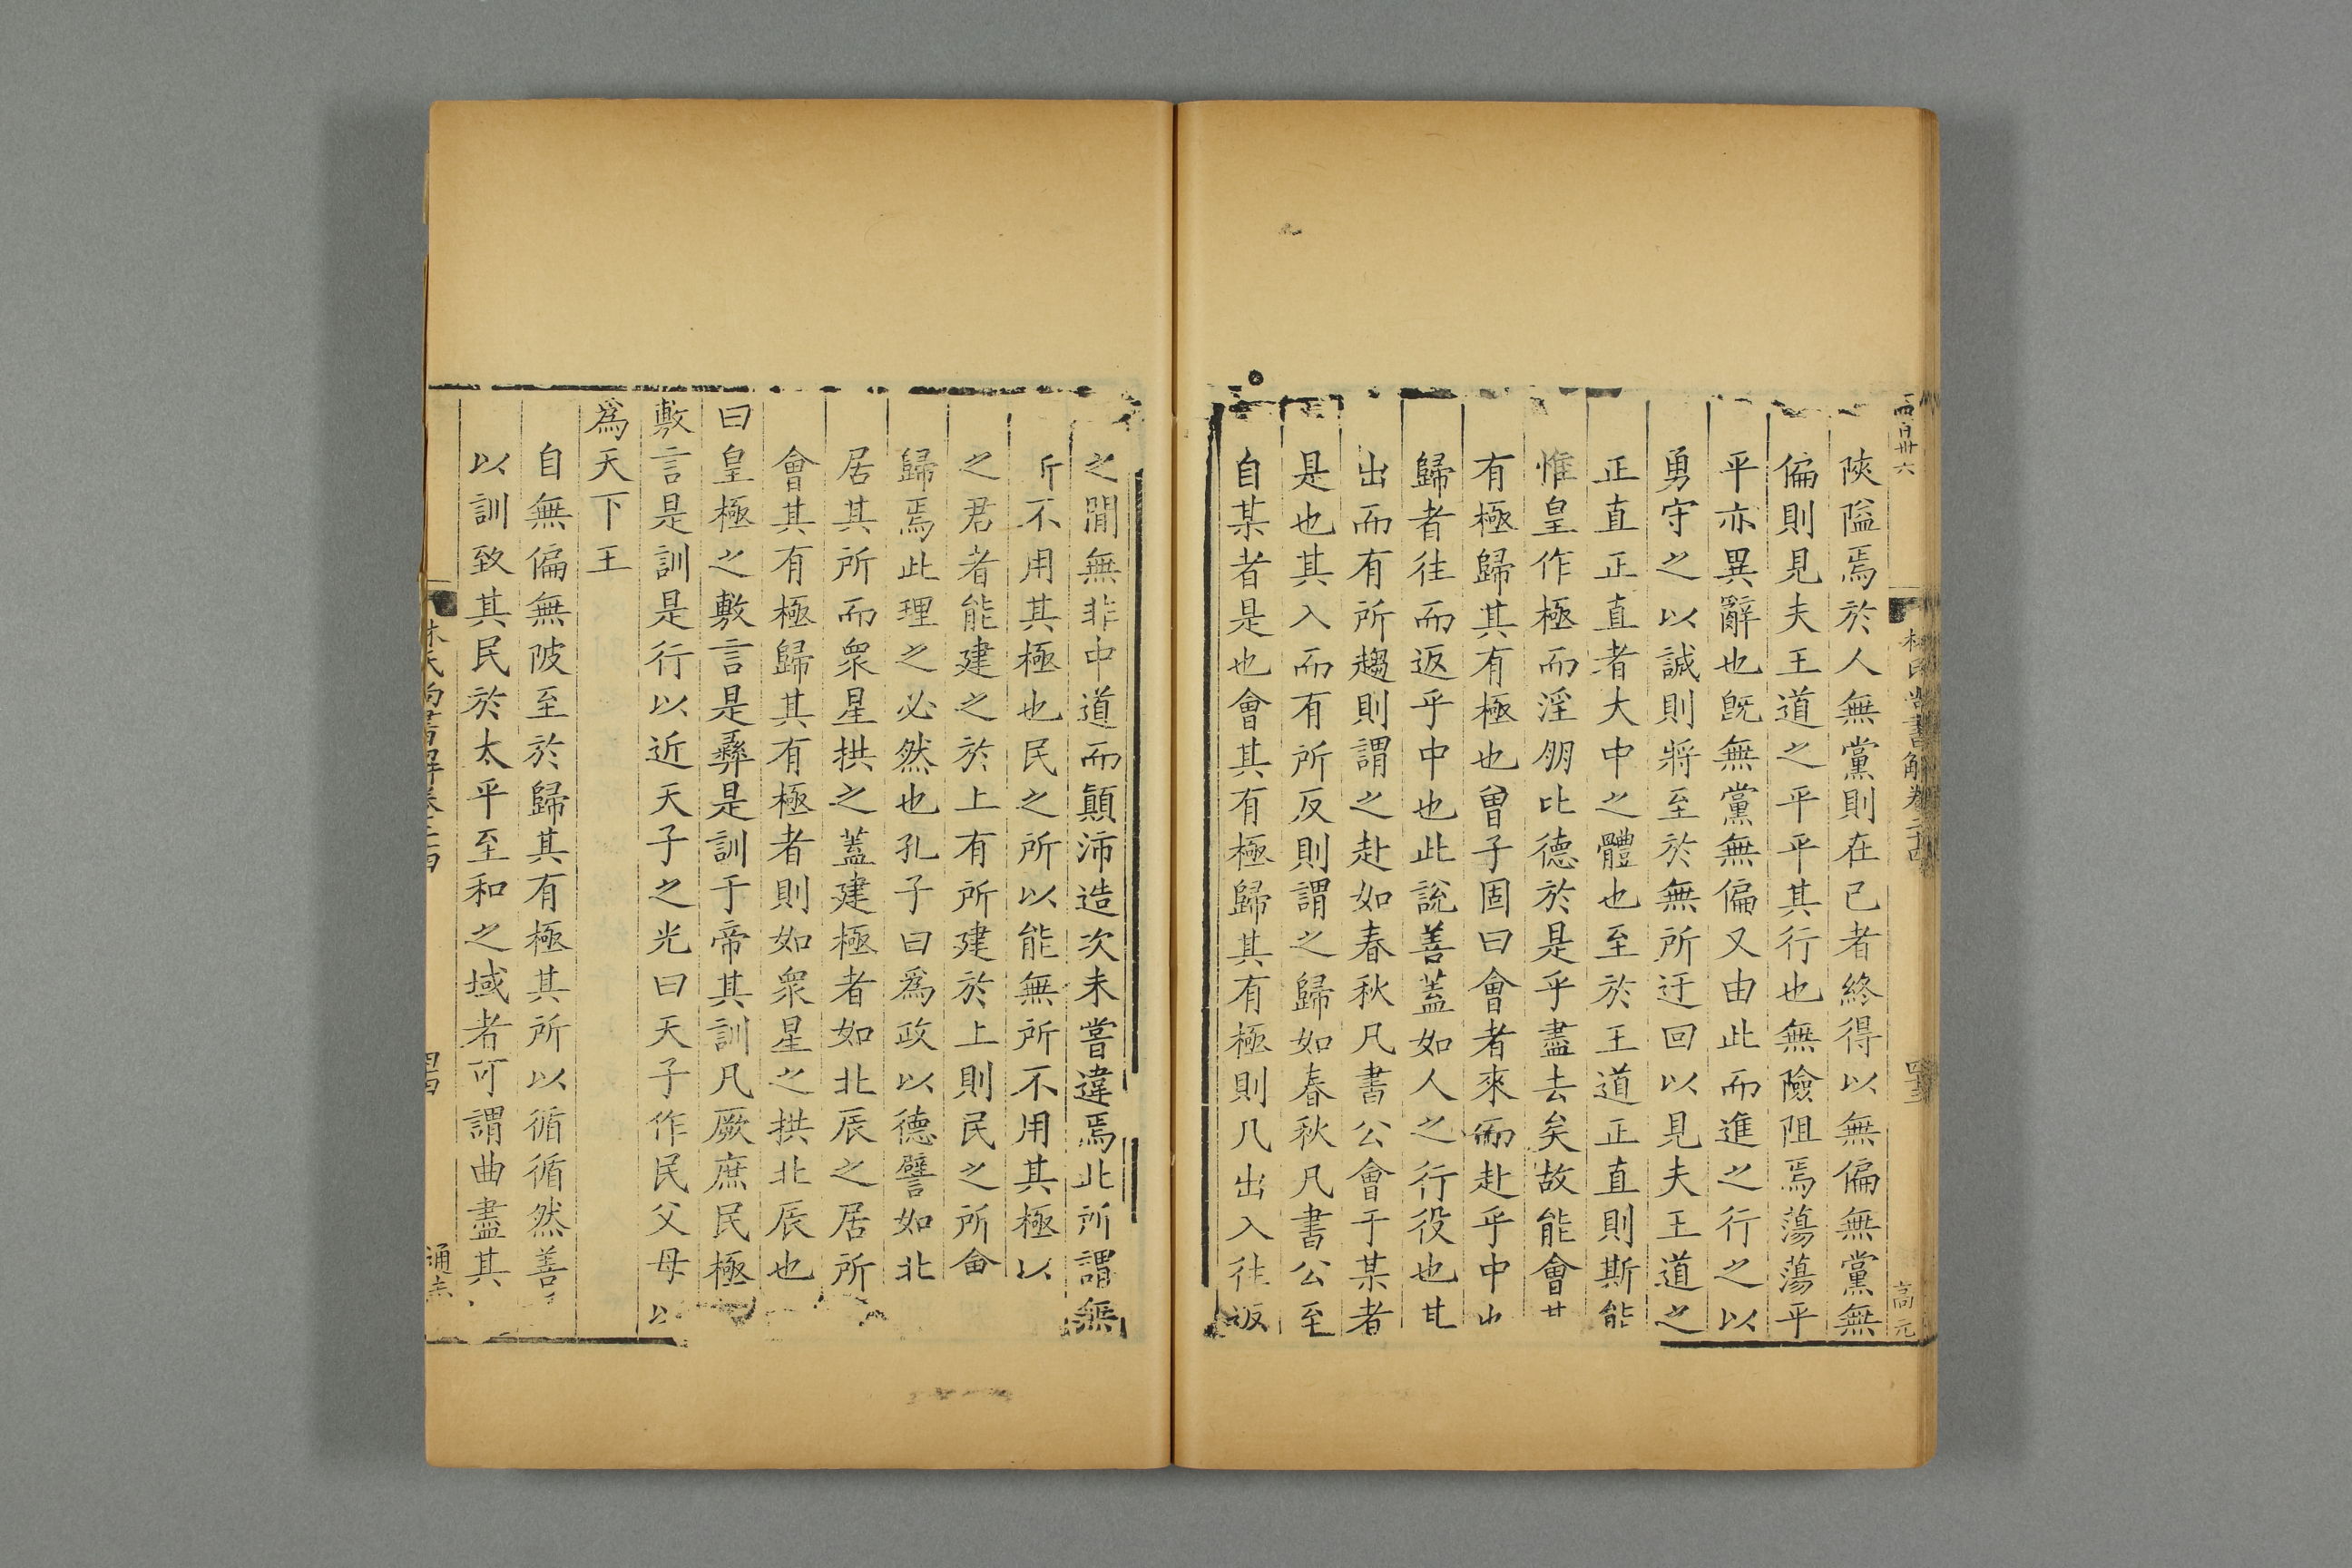 陜隘焉於人無黨則在已者終得以無偏無黨無
偏則見夫王道之平平其行也無險阻焉蕩蕩平
平亦異辭也旣無黨無偏又由此而進之行之以
勇守之以誠則將至於無所迂回以見夫王道之
正直正直者大中之體也至於王道正直則斯能
惟皇作極而淫朋比德於是乎盡去矣故能會
有極歸其有極也曾子固曰會者來而赴乎中
歸者往而返乎中也此說善蓋如人之行役也其
出而有所趨則謂之赴如春秋凡書公會于某者
是也其入而有所反則謂之歸如春秋凡書公至
自某者是也會其有極歸其有極則凡出入往返
之間無非中道而顛沛造次未嘗違焉此所謂無
所不用其極也民之所以能無所不用其極以
之君者能建之於上有所建於上則民之所會
歸焉此理之必然也孔子曰爲政以德譬如北
居其所而衆星拱之蓋建極者如北辰之居所
會其有極歸其有極者則如衆星之拱北辰也
曰皇極之敷言是彝是訓于帝其訓凡厥庶民極
敷言是訓是行以近天子之光曰天子作民父母以
爲天下王
自無偏無陂至於歸其有極其所以循循然善
以訓致其民於太平至和之域者可謂曲盡其
林氏尚書解卷二十四
四十三
高元
林氏尚書解卷二十四
四十四